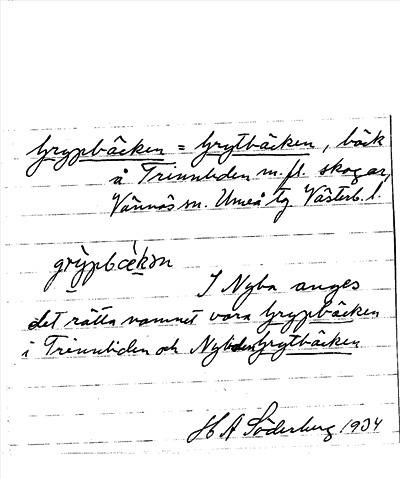 Grypbäcken = Grytbäcken, bäck
å Trinnliden m.fl. skogar,
Vännäs sn. Umeå tg Västerb. l.
grỳpbækən
I Nyba anges
det rätta namnet vara Grypbäcken
i Trinnliden och Nyliden Grytbäcken
H A Söderberg 1934